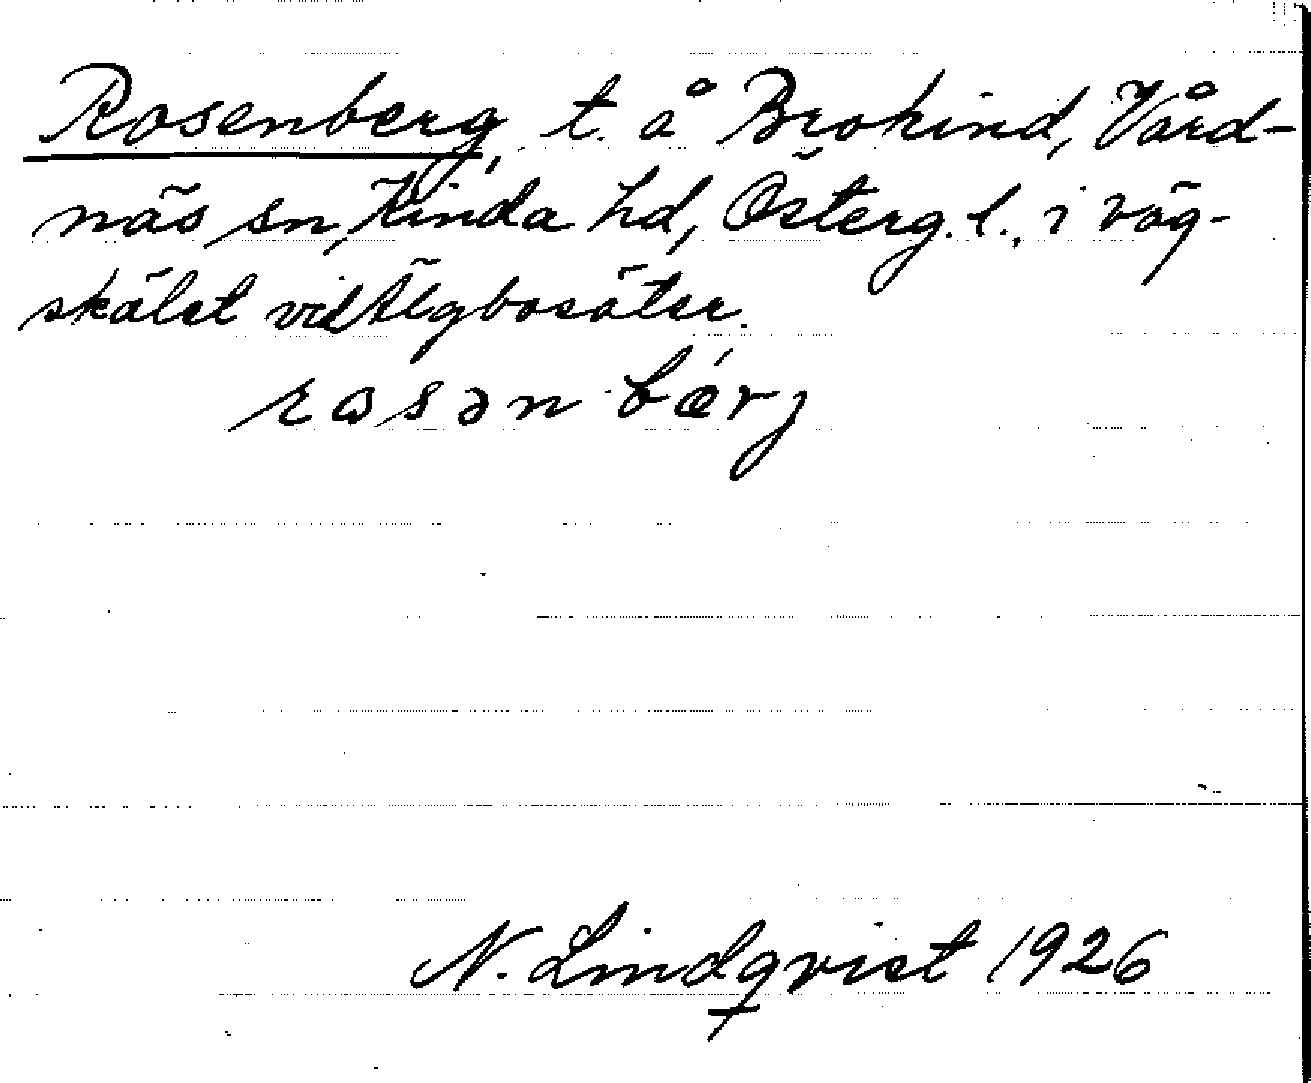 Rosenberg, t. å Brokind, Vård-
näs sn, Kinda hd, Österg. l., i väg-
skälet vid Älgbosäter.
rɷsən bærj
N. Lindqvist 1926